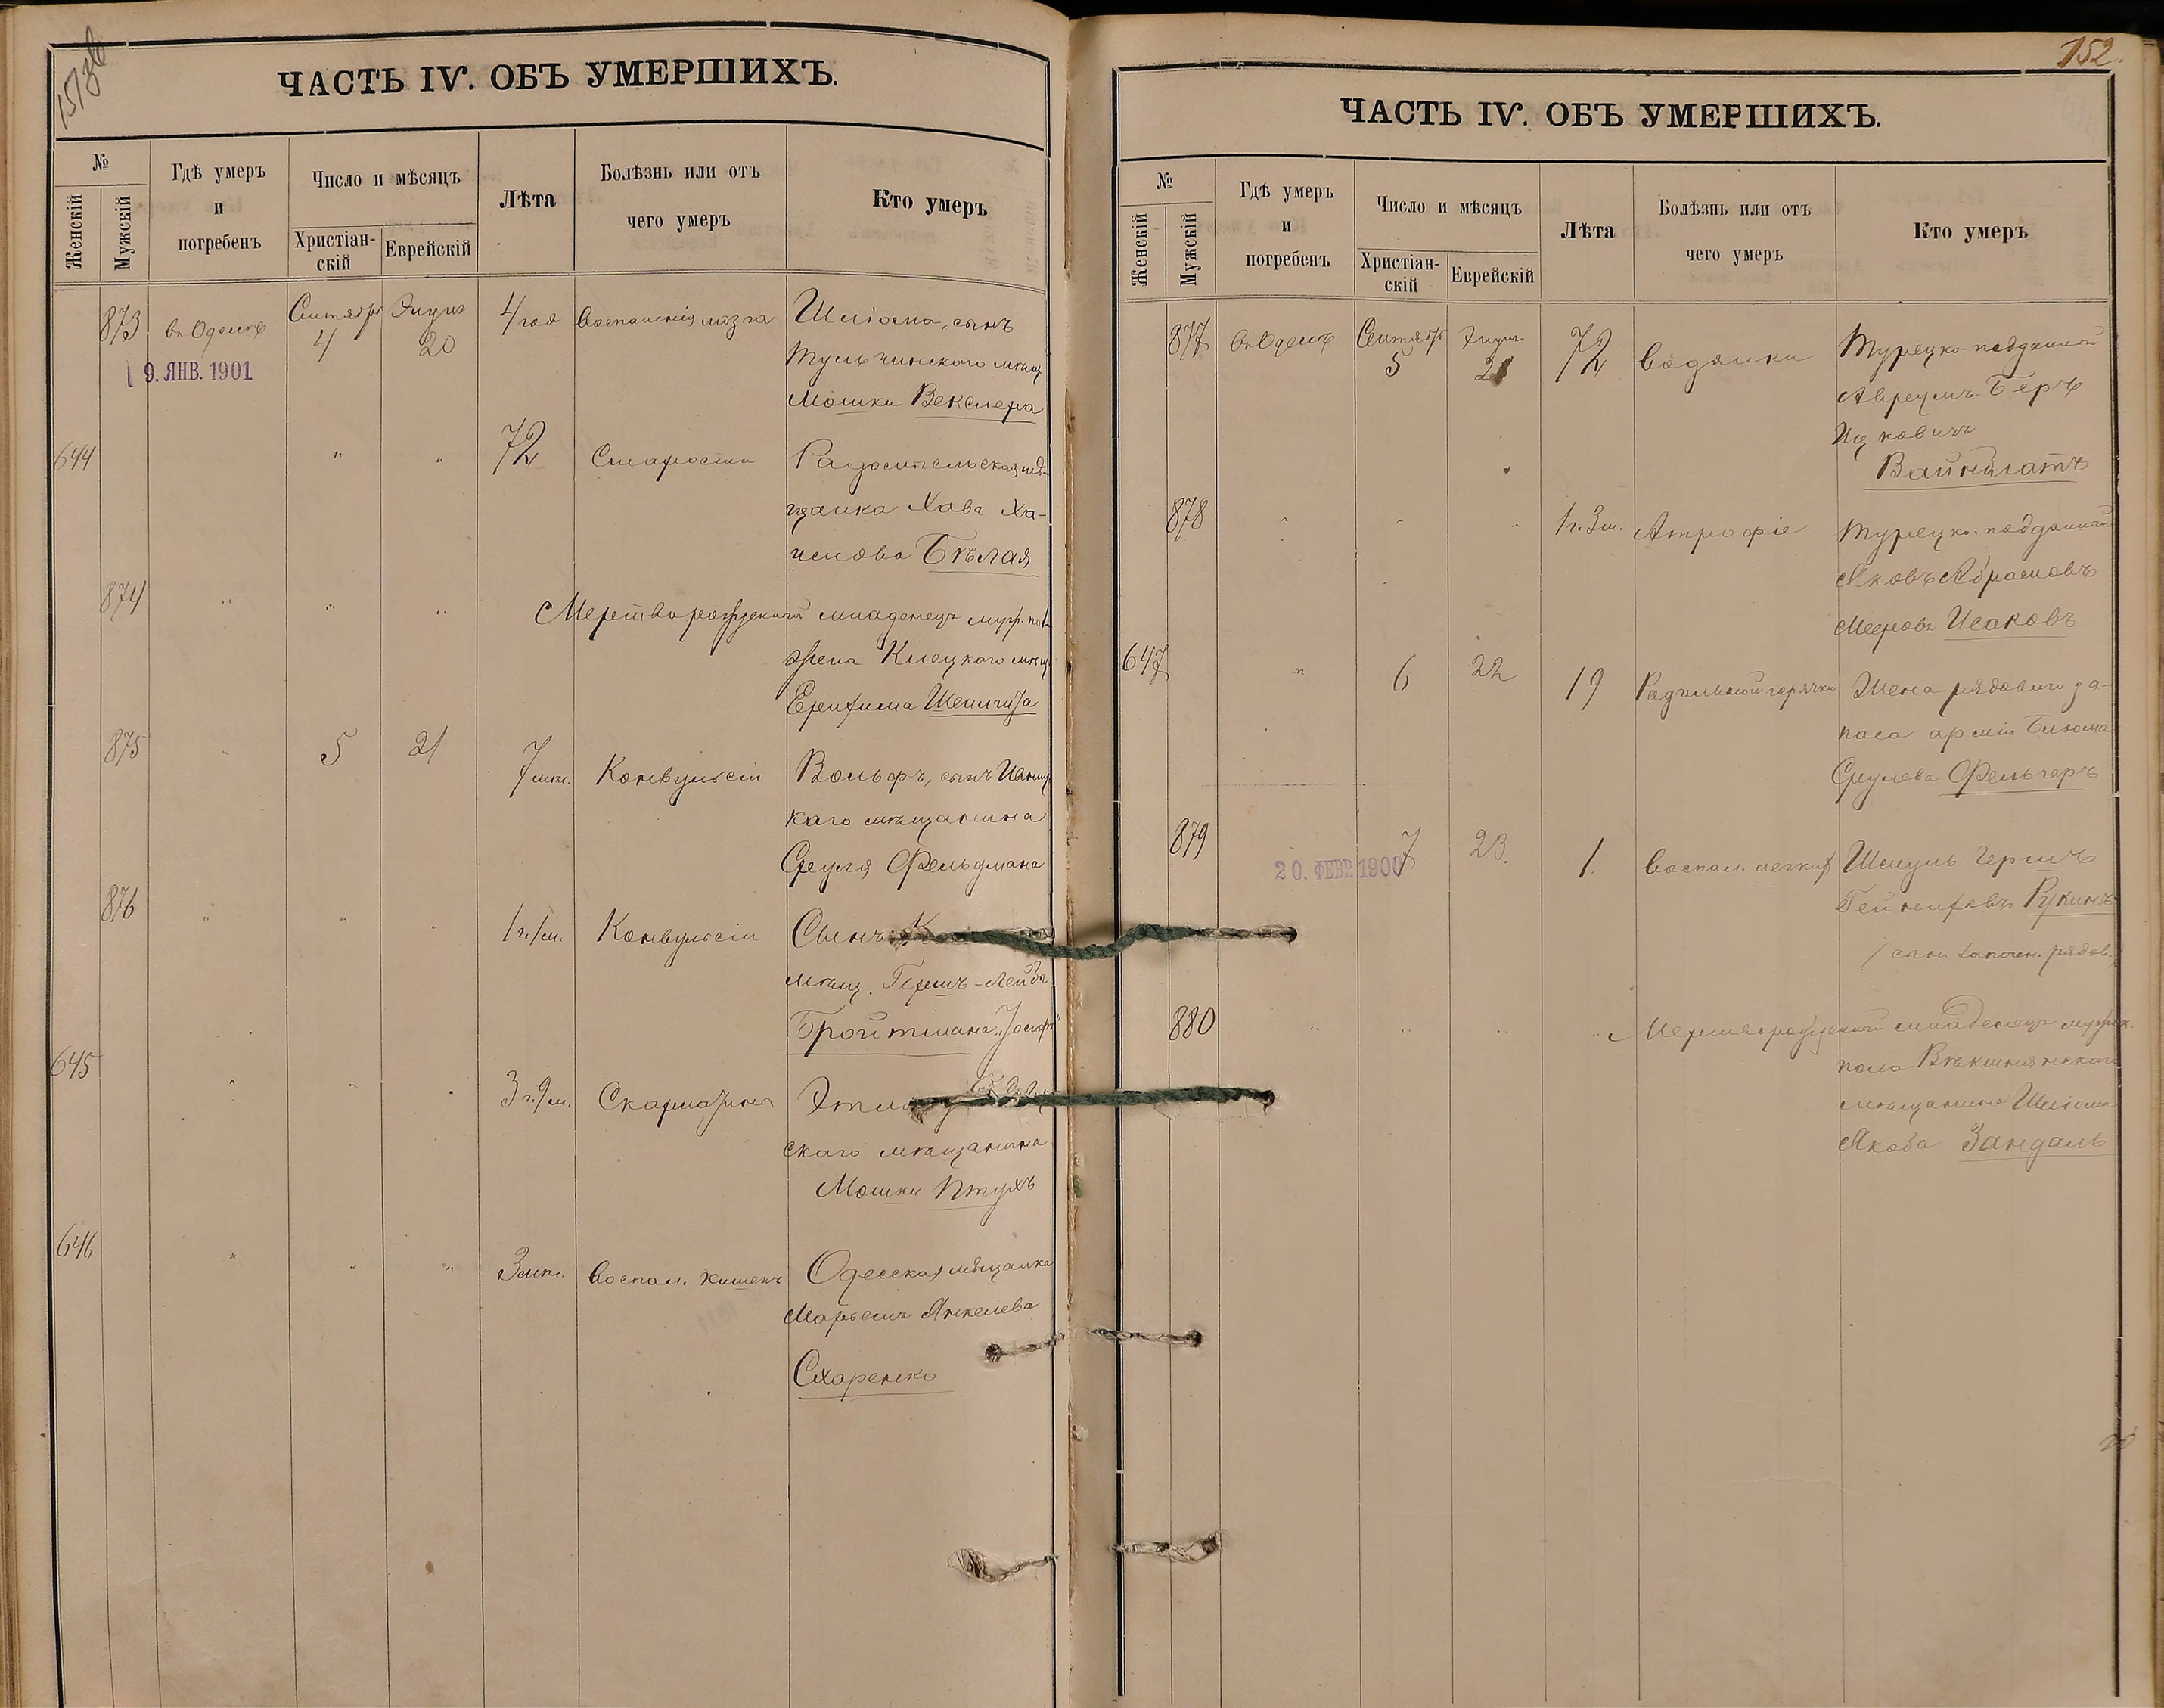 ЧАСТЬ IV. ОБЪ УМЕРШИХЪ.
№
Женскій
Мужскій
Гдѣ умеръ
и
погребенъ
Число и мѣсяцъ
Христіан-
скій
Еврейскій
Лѣта
Болѣзнь или отъ
чего умеръ
Кто умеръ
873 въ Одессѣ Сентября 4 20 4 год Воспаленія мозга Шліома, сынъ
9. ЯНВ. 1901
Тульчинского мѣщ
Мошки Векслера
644 " " 72 Старости
щанка Хава Ха-
Бѣлая
874 " " " Мертворожденный младенецъ муж. пола
Клецкого мѣщ
875 " 5 21 7 мѣс. Конвульсіи Вольфъ, сынъ
каго мѣщанина
Сруля Фельдмана
876 " " " 1 г. 1 м. Конвульсіи Сынъ
мѣщ. Гершъ-Лейба
Бройтмана „Іосифъ"
645 " " " 3 г. 9 м. Скарлатина
скаго мѣщанина
Мошки Птухъ
646 " " " 3 мѣс. Воспал. кишекъ Одесская мѣщанка
Марьемъ Янкелева
Схаренко
152.
ЧАСТЬ IV. ОБЪ УМЕРШИХЪ.
№
Женскій
Мужскій
Гдѣ умеръ
и
погребенъ
Число и мѣсяцъ
Христіан-
скій
Еврейскій
Лѣта
Болѣзнь или отъ
чего умеръ
Кто умеръ
877 въ Одессѣ Сентября 5 21 72 Водянки Турецко-подданный
Авреумъ-Беръ
Ицковичъ
878 " " " 1 г. 3 м. Атрофіе Турецко-подданный
Яковъ Абрамовъ
Мееровъ Исаковъ
647 " 6 22 19 Родильной горячки Жена рядоваго за-
паса арміи Блюма
Срулева Фельгеръ
879 7 23. 1. Воспал. легкихъ Шмуль-Гершъ
20. ФЕВР. 1900
Рукинъ
рядов.)
880 " " " " Мертворожденный младенецъ мужск.
пола Векшнянскаго
мѣщанина Шліома
Якова Зандаль